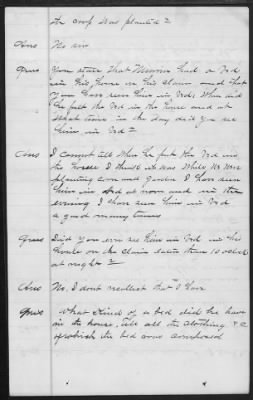 the crop was planted?
Ans No sir
Ques You state that Munson had a bed
in his house on his claim and that
you have seen him in bed, When did
he put the bed in the house and at
what time in the day did you see
him in bed?
Ans I cannot tell when he put the bed in
the house I think it was while he was
planting corn and garden I have seen
him in bed at noon and in the
evening I have seen him in bed
a good many times
Ques Did you ever see him in bed in his
house on the claim later than 10 oclock
at night?
Ans No, I dont recollect that I have
Ques What kind of a bed did he have
in the house, tell all the clothing &c
of which the bed was composed